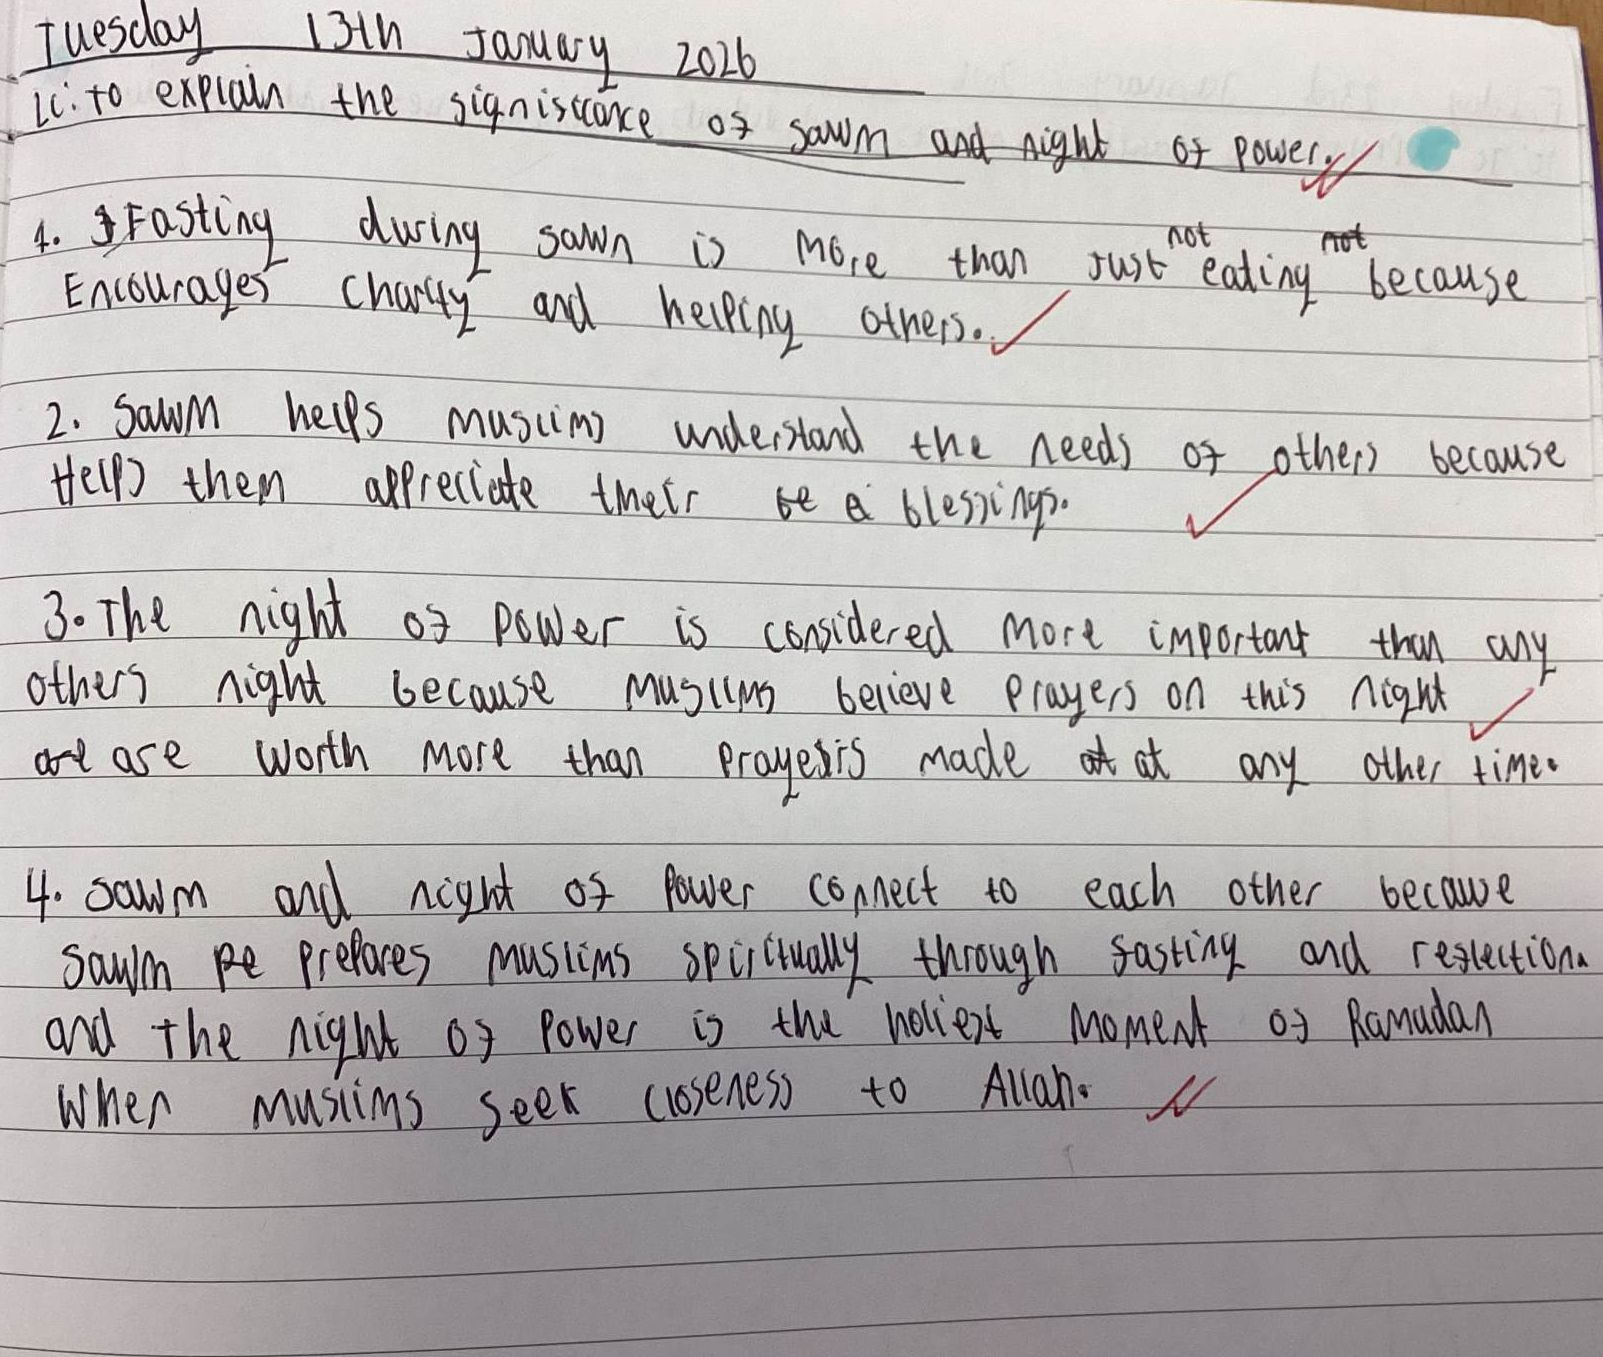 Tuesday 13th January 2026
LC: To explain the significance of sawm and night of power.
1. Fasting during sawn is more than just not eating not because
Encourages charity and helping others.
2. Sawm helps muslims understand the needs of others because
Helps them appreciate their be a blessings.
3. The night of power is considered more important than any
others night because muslims believe prayers on this night
are are worth more than prayers made at at any other time.
4. Sawm and night of Power connect to each other because
sawm pe prepares muslims spiritually through fasting and reflection.
and the night of Power is the holiest moment of Ramadan
when muslims seek closeness to Allah.